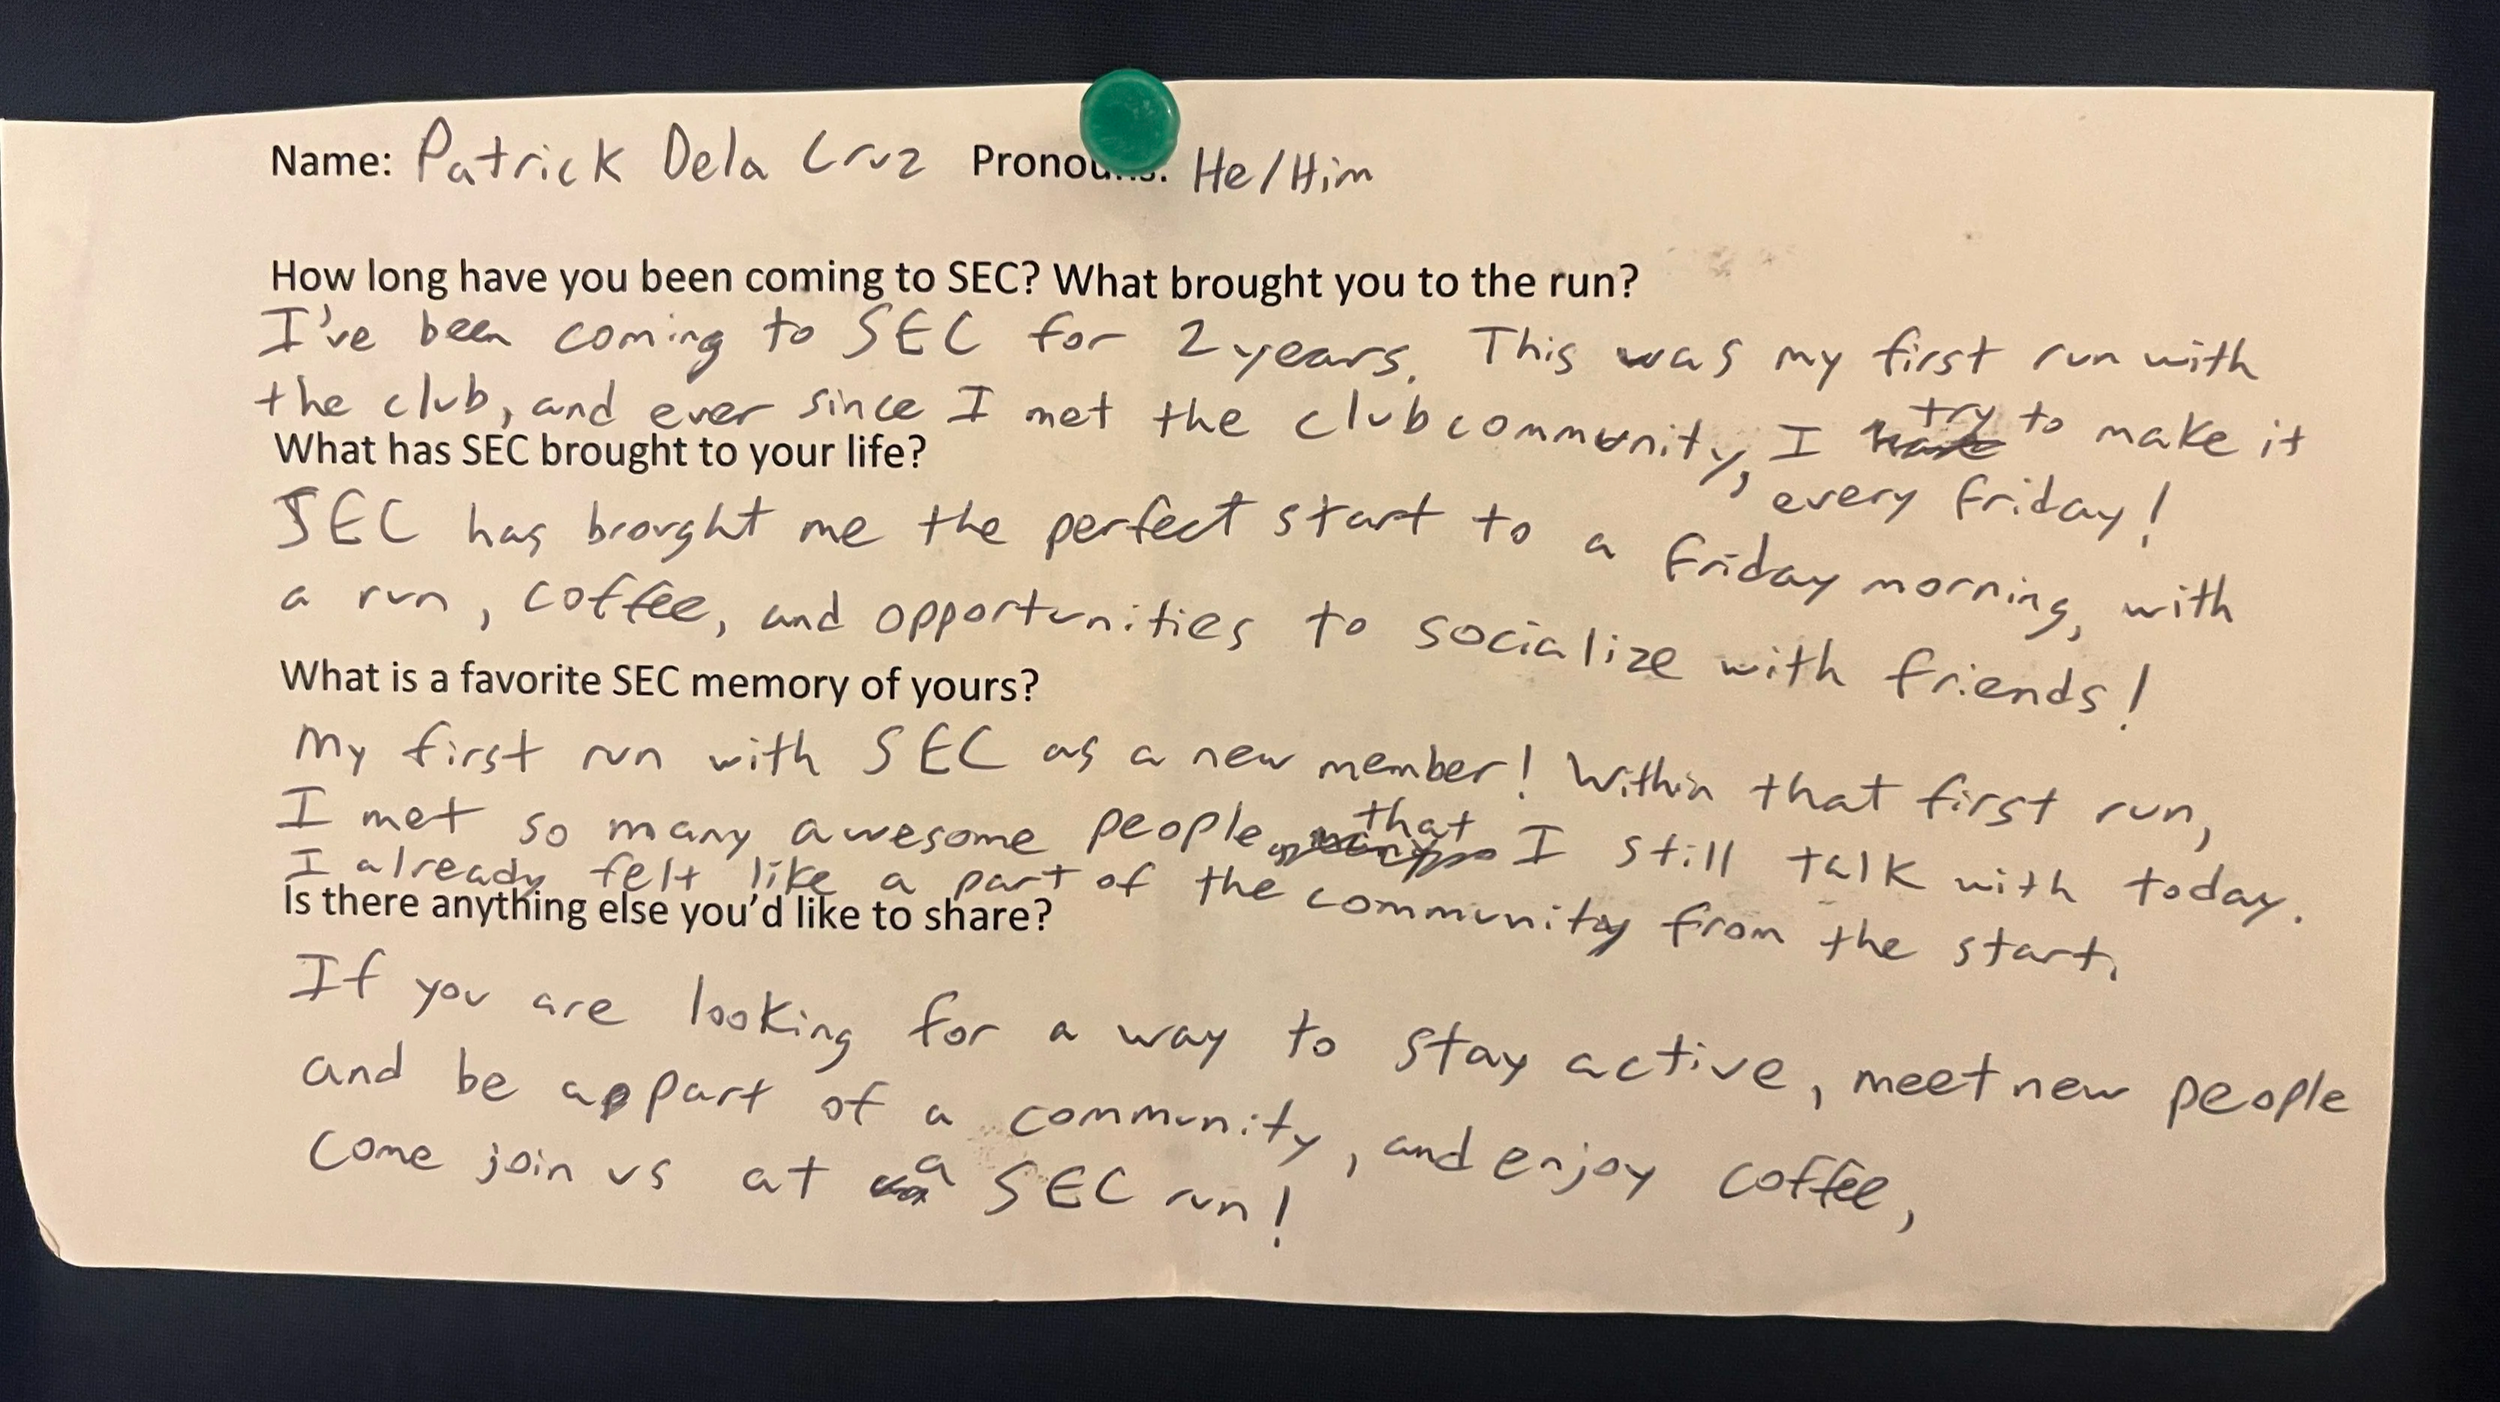 Name: Patrick Dela Cruz Pronouns: He/Him
How long have you been coming to SEC? What brought you to the run?
I've been coming to SEC for 2 years. This was my first run with
the club, and ever since I met the club community, I try to make it
every friday!
What has SEC brought to your life?
SEC has brought me the perfect start to a friday morning, with
a run, coffee, and opportunities to socialize with friends!
What is a favorite SEC memory of yours?
My first run with SEC as a new member! Within that first run,
I met so many awesome people that I still talk with today.
I already felt like a part of the community from the start.
Is there anything else you'd like to share?
If you are looking for a way to stay active, meet new people
and be a part of a community, and enjoy coffee,
Come join us at a SEC run!